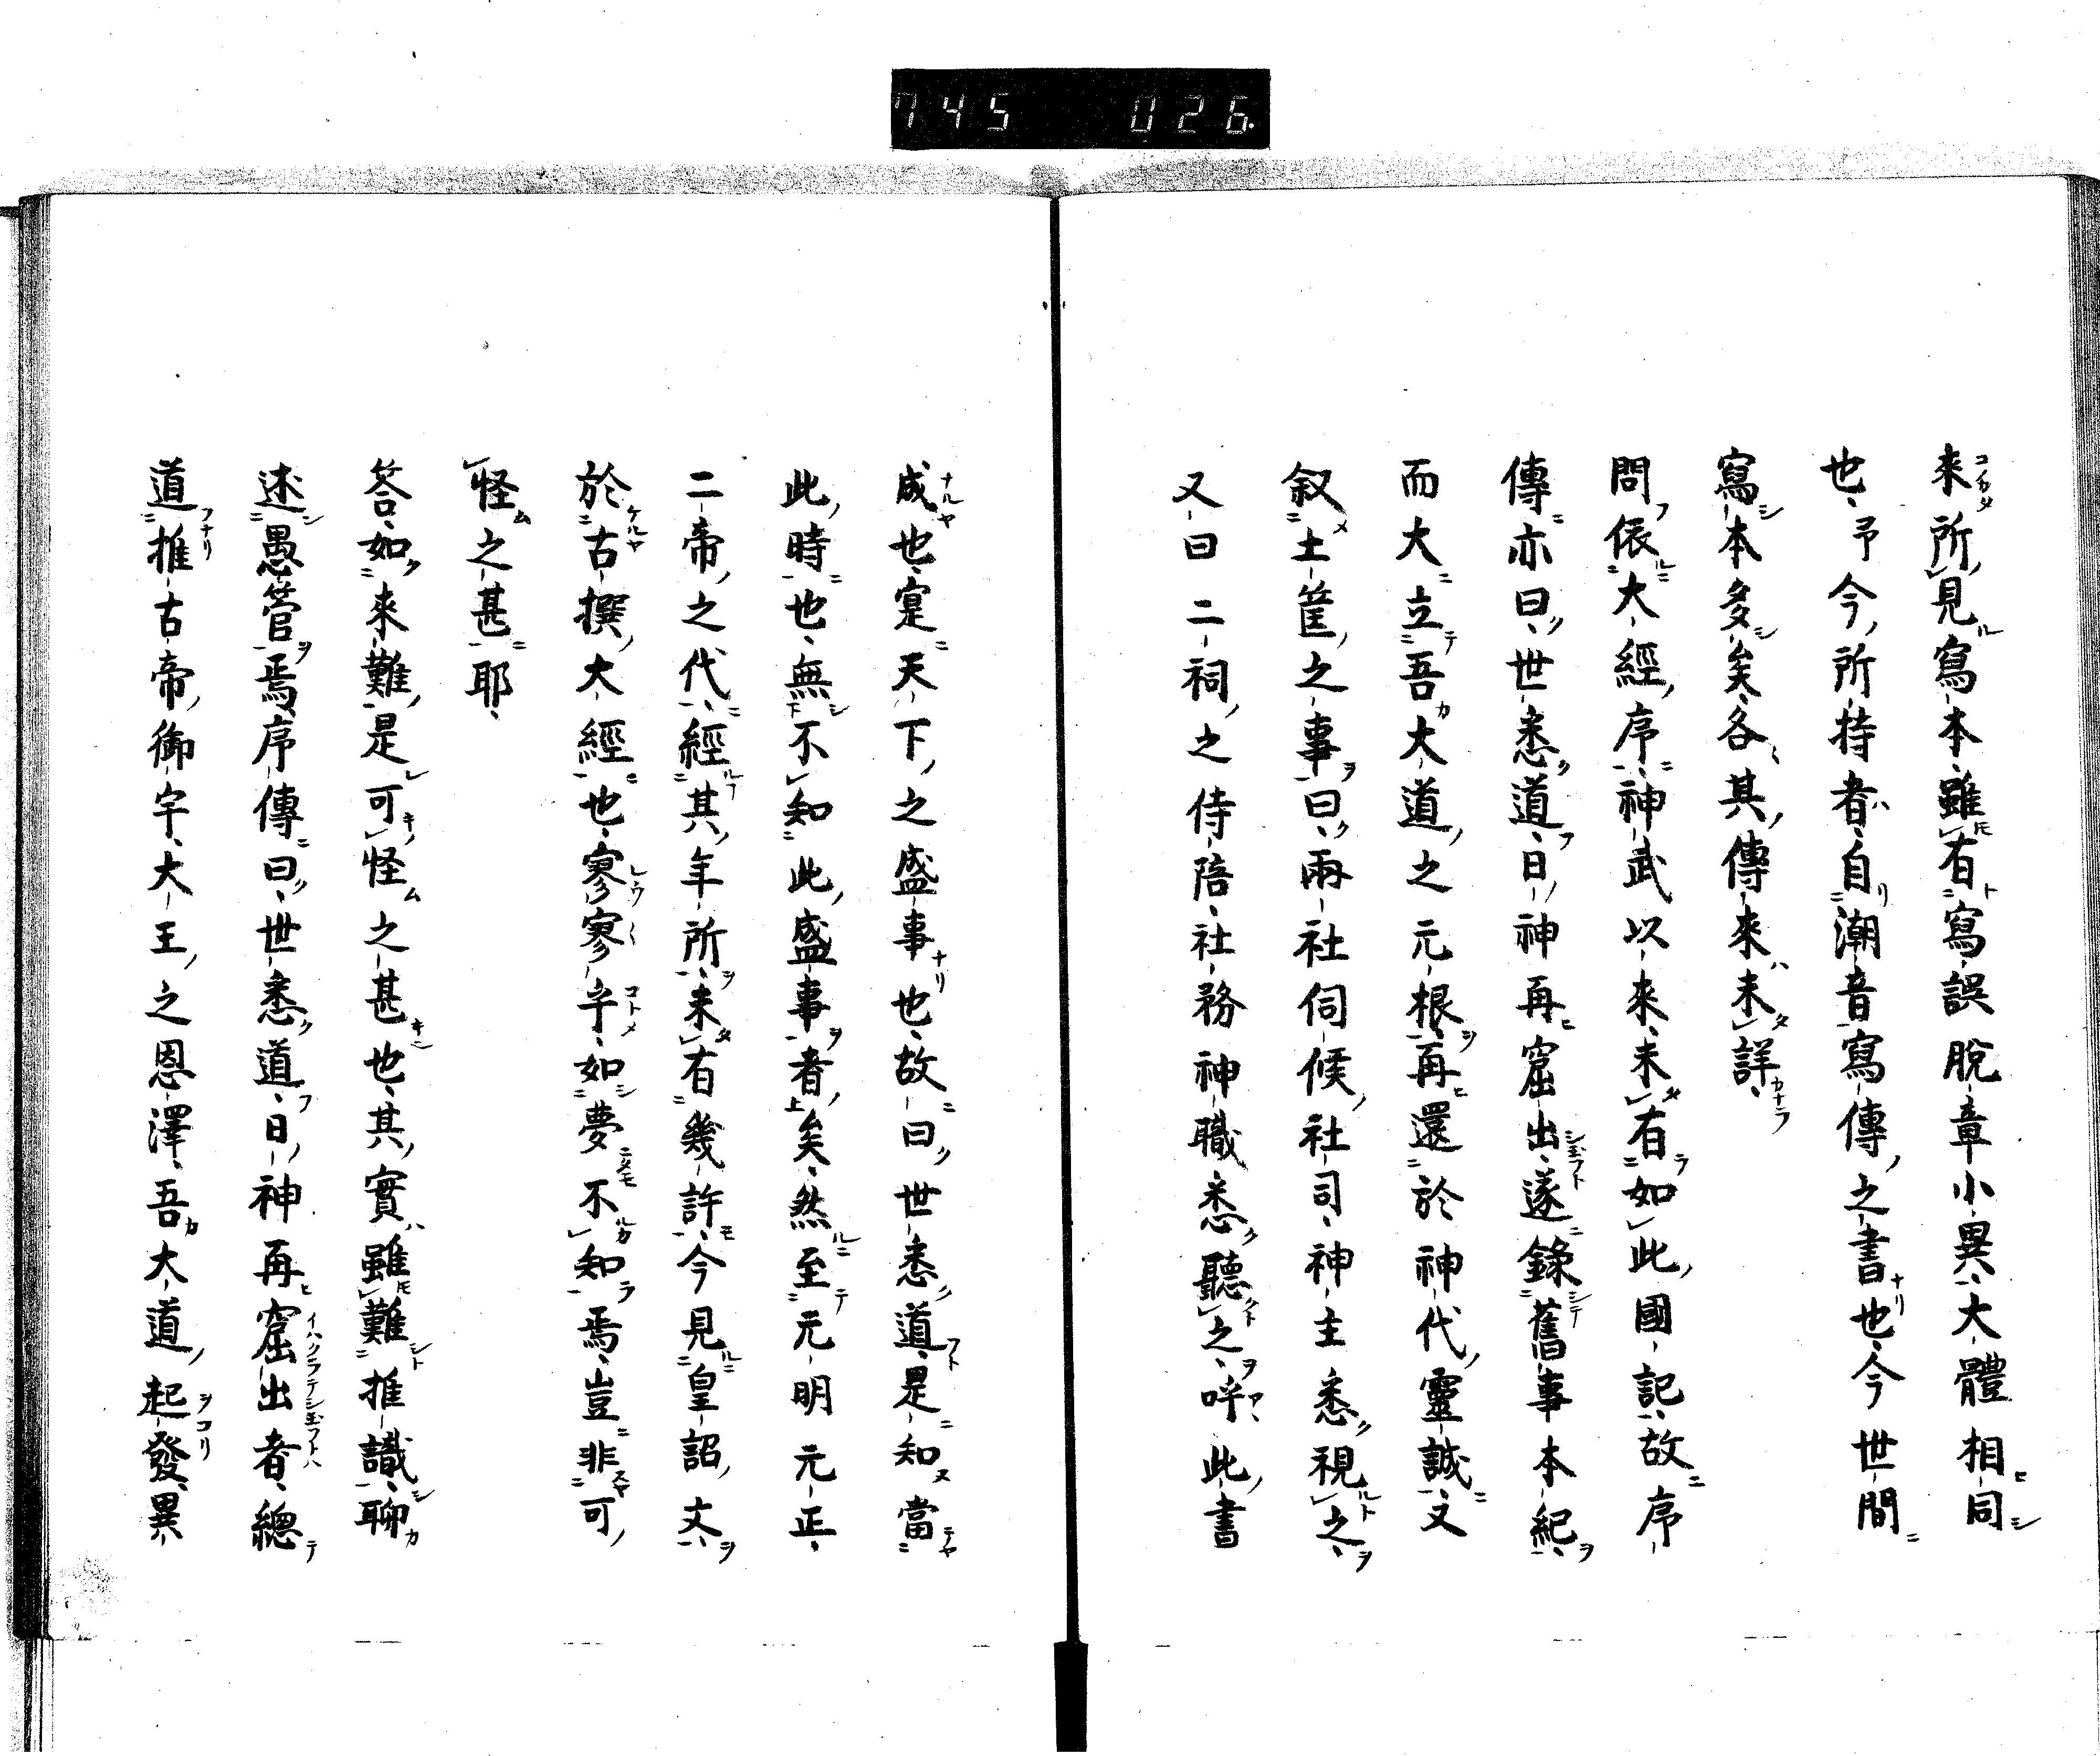 745 026.
來所見寫本、雖有寫誤脫章小異、大體相同
也、予今所持者、自潮音寫傳之書也、今世間
寫本多矣、各其傳來未詳、
問、依大經序、神武以來、未有如此國記、故序
傳亦曰、世悉道、日神再窟出、遂錄舊事本紀、
而大立吾大道之元根、再還於神代靈誠、又
叙土筐之事曰、兩社伺候、社司、神主悉視之、
又曰二祠之侍陪、社務神職悉聽之、呼此書
成也、寔天下之盛事也、故曰、世悉道、是知當
此時也、無不知此盛事者矣、然至元明元正、
二帝之代、經其年所、未有幾許、今見皇詔文、
於古撰大經也、寥寥乎、如夢不知焉、豈非可
怪之甚耶、
答、如來難、是可怪之甚也、其實雖難推識、聊
述愚管焉、序傳曰、世悉道、日神再窟出者、總
道推古帝御宇、大王之恩澤、吾大道起發、異